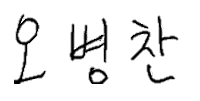 오병찬